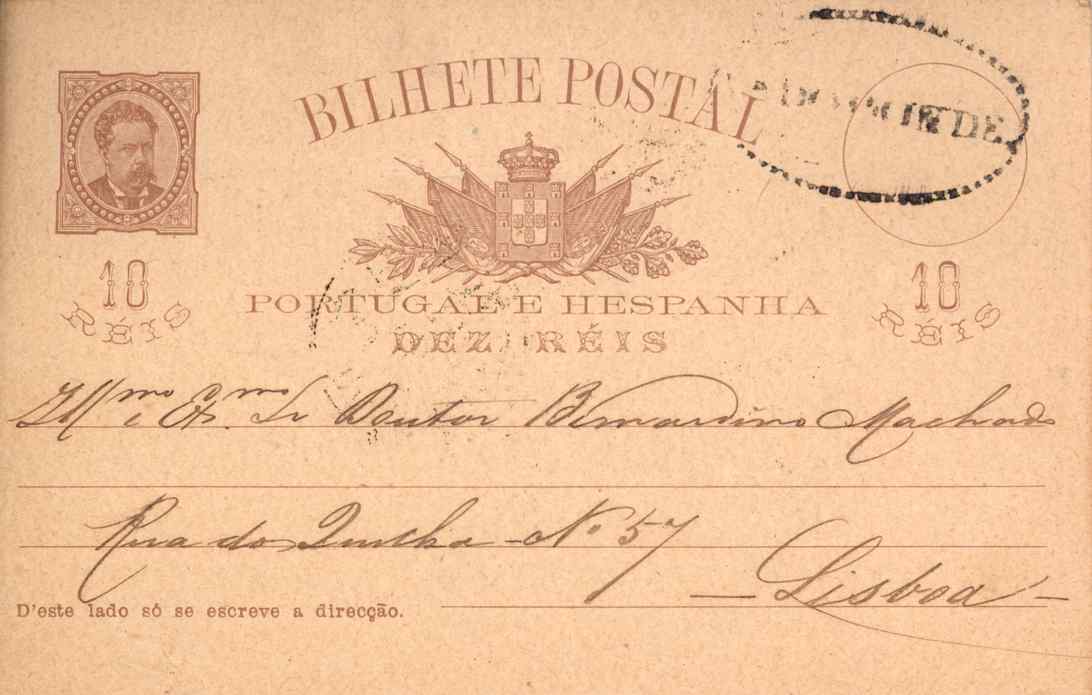 BILHETE POSTAL
10 RÉIS
10 RÉIS
PORTUGAL E HESPANHA
DEZ RÉIS
Ill.mo e Ex.mo Sr Doutor Bernardino Machado
Rua do - Nº 57
— Lisboa —
D'este lado só se escreve a direcção.